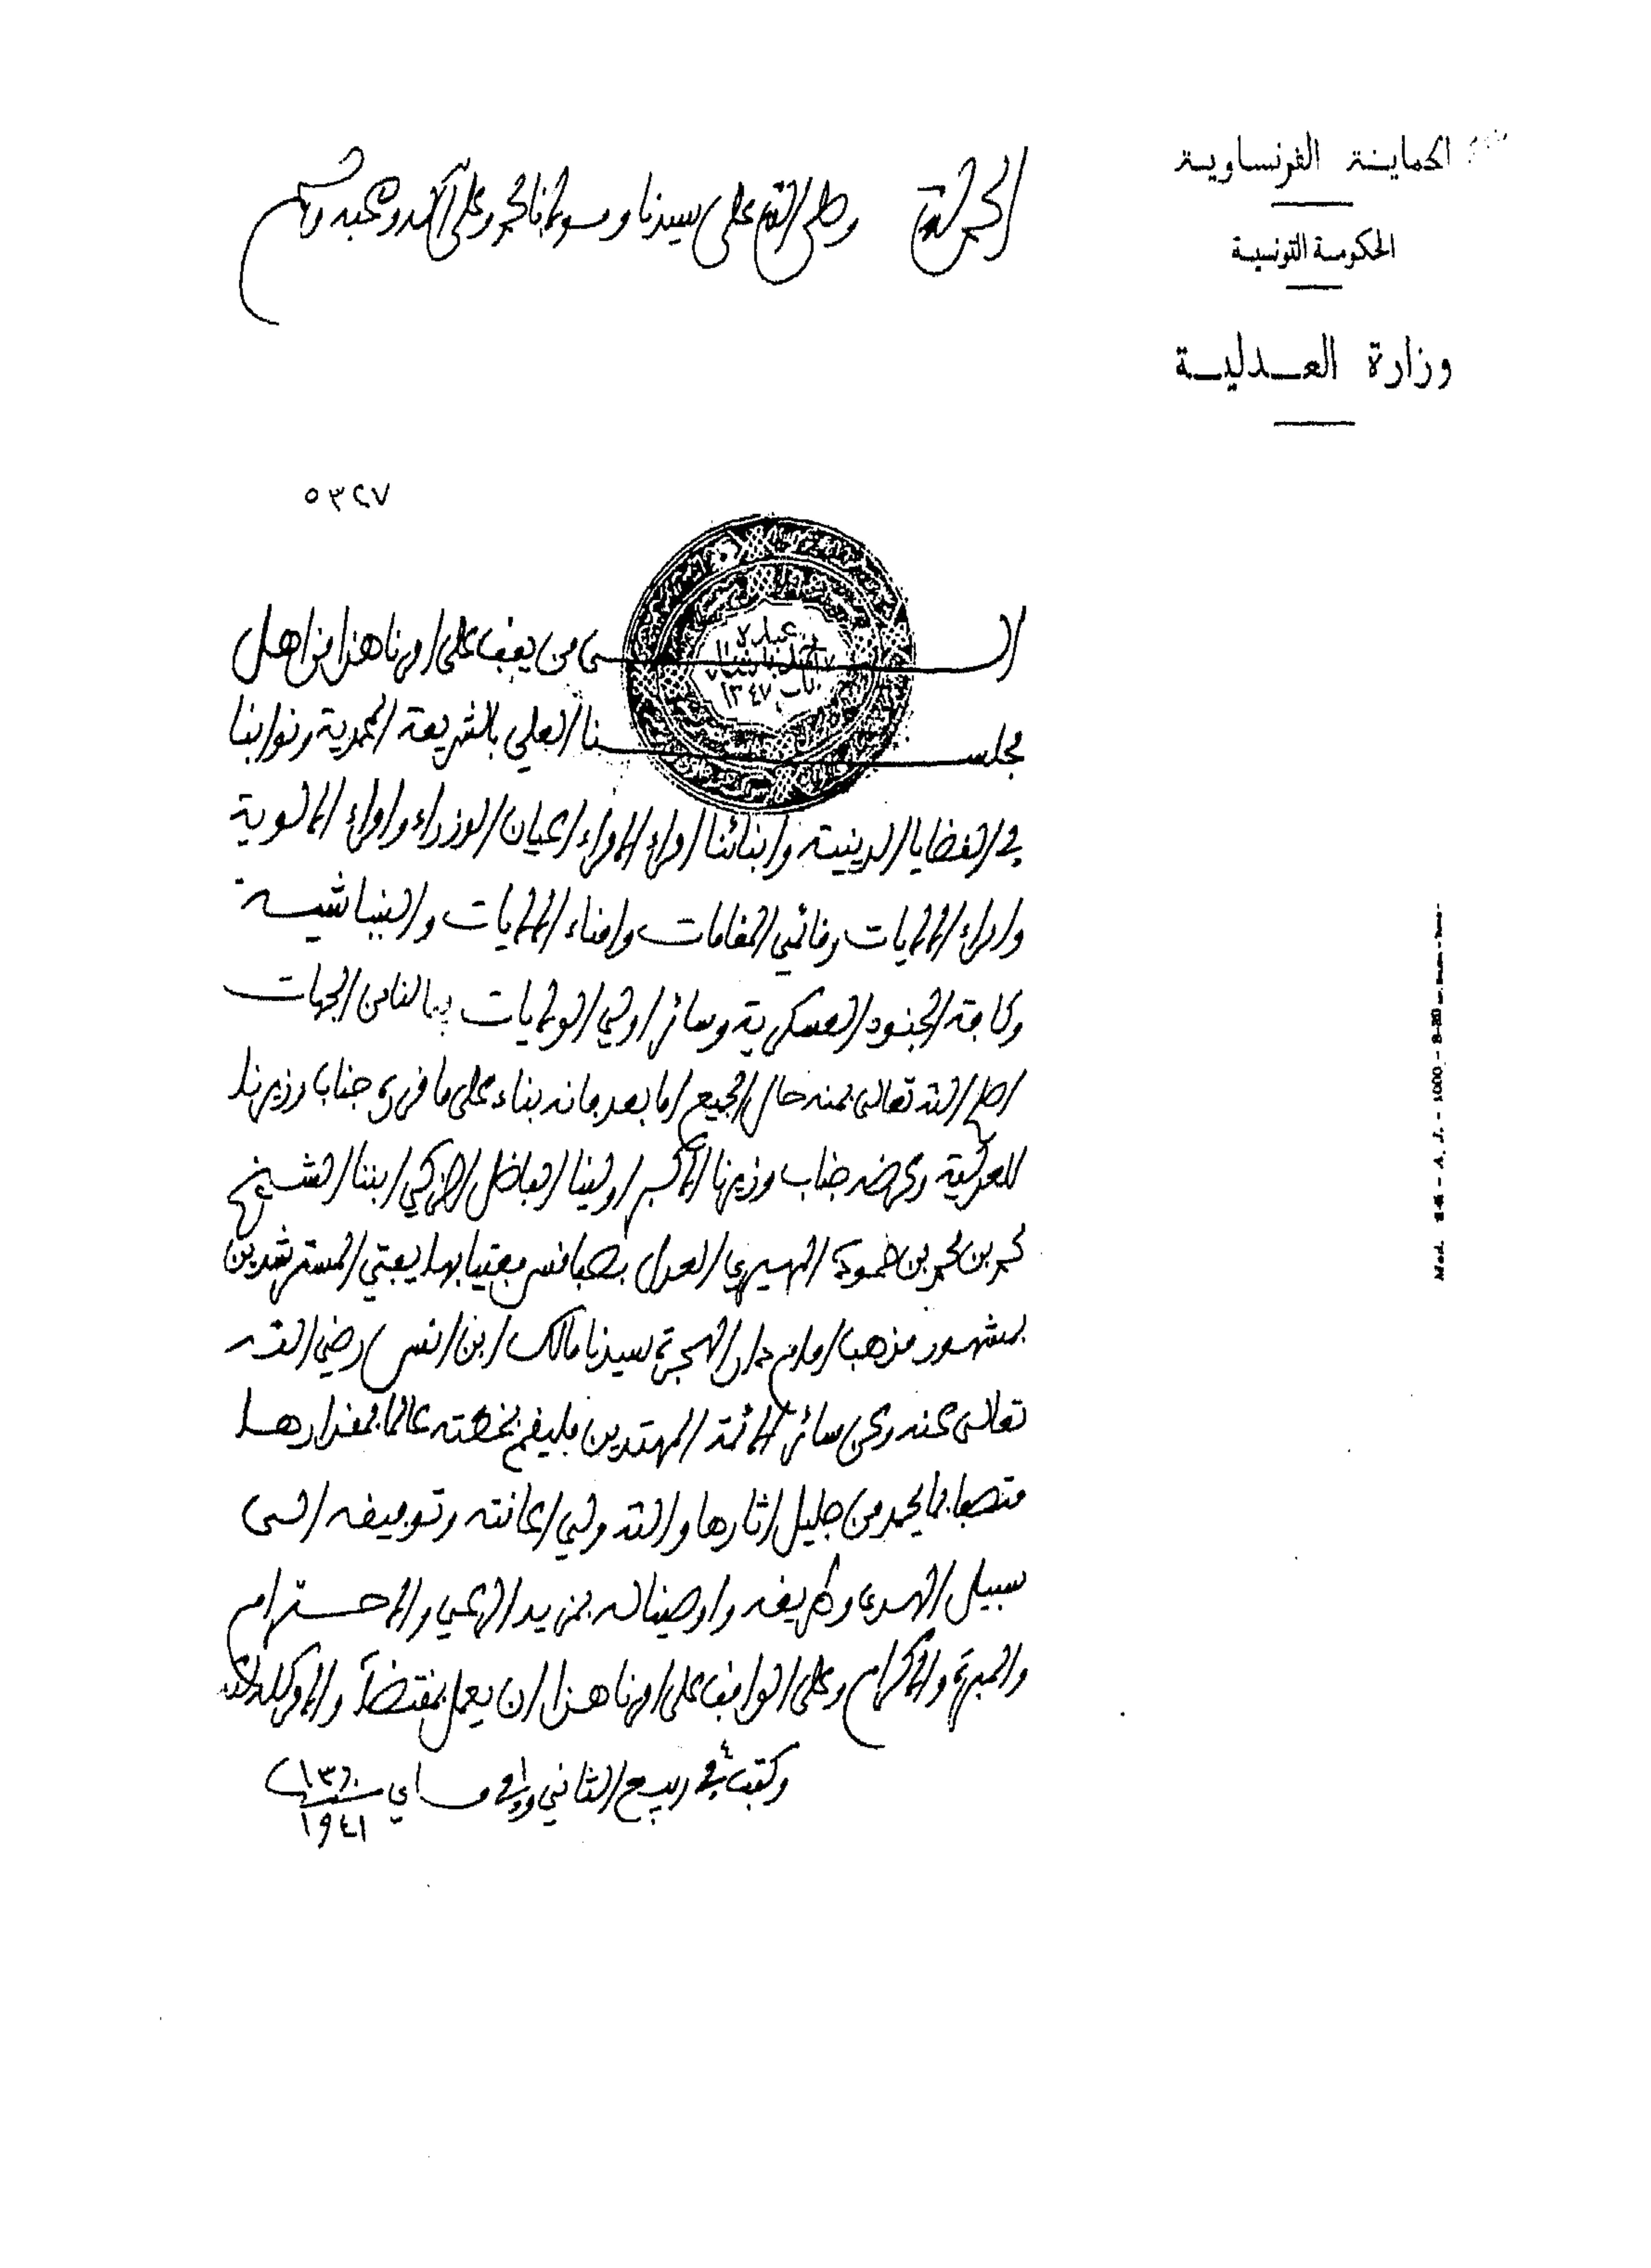 الحماية الفرنساوية
الحكومة التونسية
وزارة العدلية
الحمد لله وصلى الله على سيدنا ومولانا محمد وعلى آله وصحبه وسلم
٥٣٢٧
عبده
١٣٤٧
الى من يقف على امرنا هذا من اهل
مجلسنا العلي بالشريعة المحمدية ونوابنا
في القضايا الدينية وابنائنا امراء الامراء اعيان الوزراء وامراء الالوية
وامراء الالايات وقائمي المقامات وامناء الالايات والبنباشية
وكافة الجنود العسكرية وسائر اولي الولايات بمالنا من الجهات
اصلح الله تعالى بمنه حال الجميع اما بعد فانه بناء على ما قرره جناب وزيرنا
للعدلية وعرضه جناب وزيرنا الاكبر اولينا الفاضل الزكي ابننا الشيخ
محمد بن محمد بن حمودة المهيري العدل بصفاقس مفتيا بها يفتي المسترشدين
بمشهور مذهب امام دار الهجرة سيدنا مالك ابن انس رضي الله
تعالى عنه وعن سائر الائمة المهتدين فليقم بخطته عالما بمقدارها
متصفا بما يحمد من جليل اثارها والله ولي اعانته وتوفيقه الى
سبيل الهدى وطريقه واوصينا له بمزيد الرعي والاحترام
والمبرة والاكرام وعلى الواقف على امرنا هذا ان يعمل بمقتضاه والامر كله لله
وكتب في ٤ ربيع الثاني وفي ١ ماي سنة ١٣٦٠
١٩٤١
Mod. 14 - A. J. - 1000 - 8-20